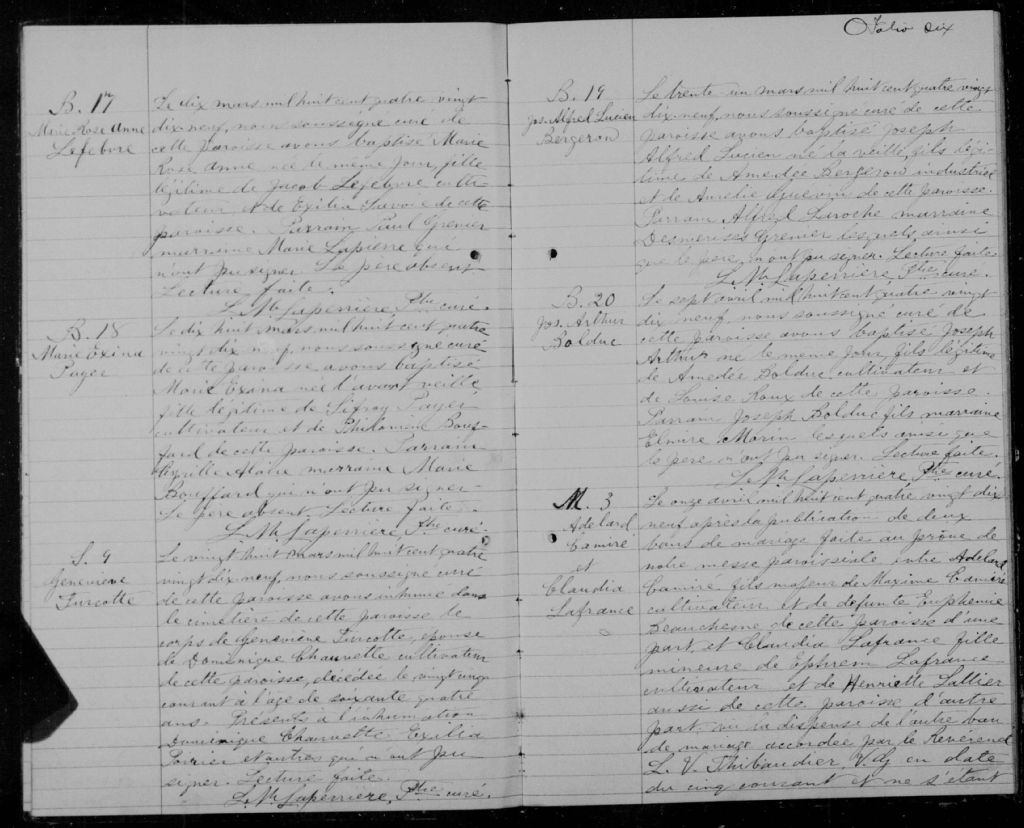 B. 17
Marie Rose Anne
Lefebvre
Le dix mars mil huit cent quatre vingt
dix neuf, nous soussigné curé de
cette paroisse avons baptisé Marie
Rose anne née le même jour, fille
légitime de Jacob Lefebvre culti
vateur, et de Exilia Savoie de cette
paroisse. Parrain Paul Grenier
marraine Marie Lapierre qui
n'ont pu signer. Le père absent
Lecture faite.
L. M. Laperrière, Ptre curé.
B. 18
Marie Exina
Payer
Le dix huit mars mil huit cent quatre
vingt dix neuf, nous soussigné curé
de cette paroisse avons baptisé
Marie Exina née l'avant veille,
fille légitime de Sifroy Payer
cultivateur et de Philomène Bouf
fard de cette paroisse. Parrain
Cyrille Allaire marraine Marie
Bouffard qui n'ont pu signer.
Le père absent. Lecture faite.
L. M. Laperrière, Ptre curé.
S. 9
Geneviève
Turcotte
Le vingt huit mars mil huit cent quatre
vingt dix neuf, nous soussigné curé
de cette paroisse avons inhumé dans
le cimetière de cette paroisse le
corps de Geneviève Turcotte, épouse
de Dominique Chauvette cultivateur
de cette paroisse, décédée le vingt cinq
courant à l'âge de soixante quatre
ans. Présents à l'inhumation
Dominique Chauvette Exilia
Poirier et autres qui n'ont pu
signer. Lecture faite.
L. M. Laperrière, Ptre curé.
Folio dix
B. 19
Jos. Alfred Lucien
Bergeron
Le trente un mars mil huit cent quatre vingt
dix neuf, nous soussigné curé de cette
paroisse avons baptisé Joseph
Alfred Lucien né la veille, fils légi
time de Amedée Bergeron industriel
et de Aurélie de cette paroisse.
Parrain Alfred Laroche marraine
Desmerises Grenier lesquels, ainsi
que le père, n'ont pu signer. Lecture faite
L. M. Laperrière Ptre curé.
B. 20
Jos. Arthur
Bolduc
Le sept avril mil huit cent quatre vingt
dix neuf, nous soussigné curé de
cette paroisse avons baptisé Joseph
Arthur né le même jour, fils légitime
de Amedée Bolduc cultivateur et
de Louise Roux de cette paroisse.
Parrain Joseph Bolduc fils marraine
Elmire Morin lesquels ainsi que
le père n'ont pu signer. Lecture faite.
L. M. Laperrière, Ptre curé.
M. 3
Adelard
Camiré
et
Claudia
Lafrance
Le onze avril mil huit cent quatre vingt dix
neuf après la publication de deux
bans de mariage faite au prône de
notre messe paroissiale entre Adelard
Camiré fils majeur de Maxime Camiré
cultivateur et de défunte Euphémie
Beauchesne de cette paroisse d'une
part, et Claudia Lafrance fille
mineure de Ephrem Lafrance
cultivateur et de Henriette Lattier
aussi de cette paroisse d'autre
part, vu la dispense de l'autre ban
de mariage accordée par le Révérend
L. V. Thibaudier V.G. en date
du cinq courant et ne s'étant